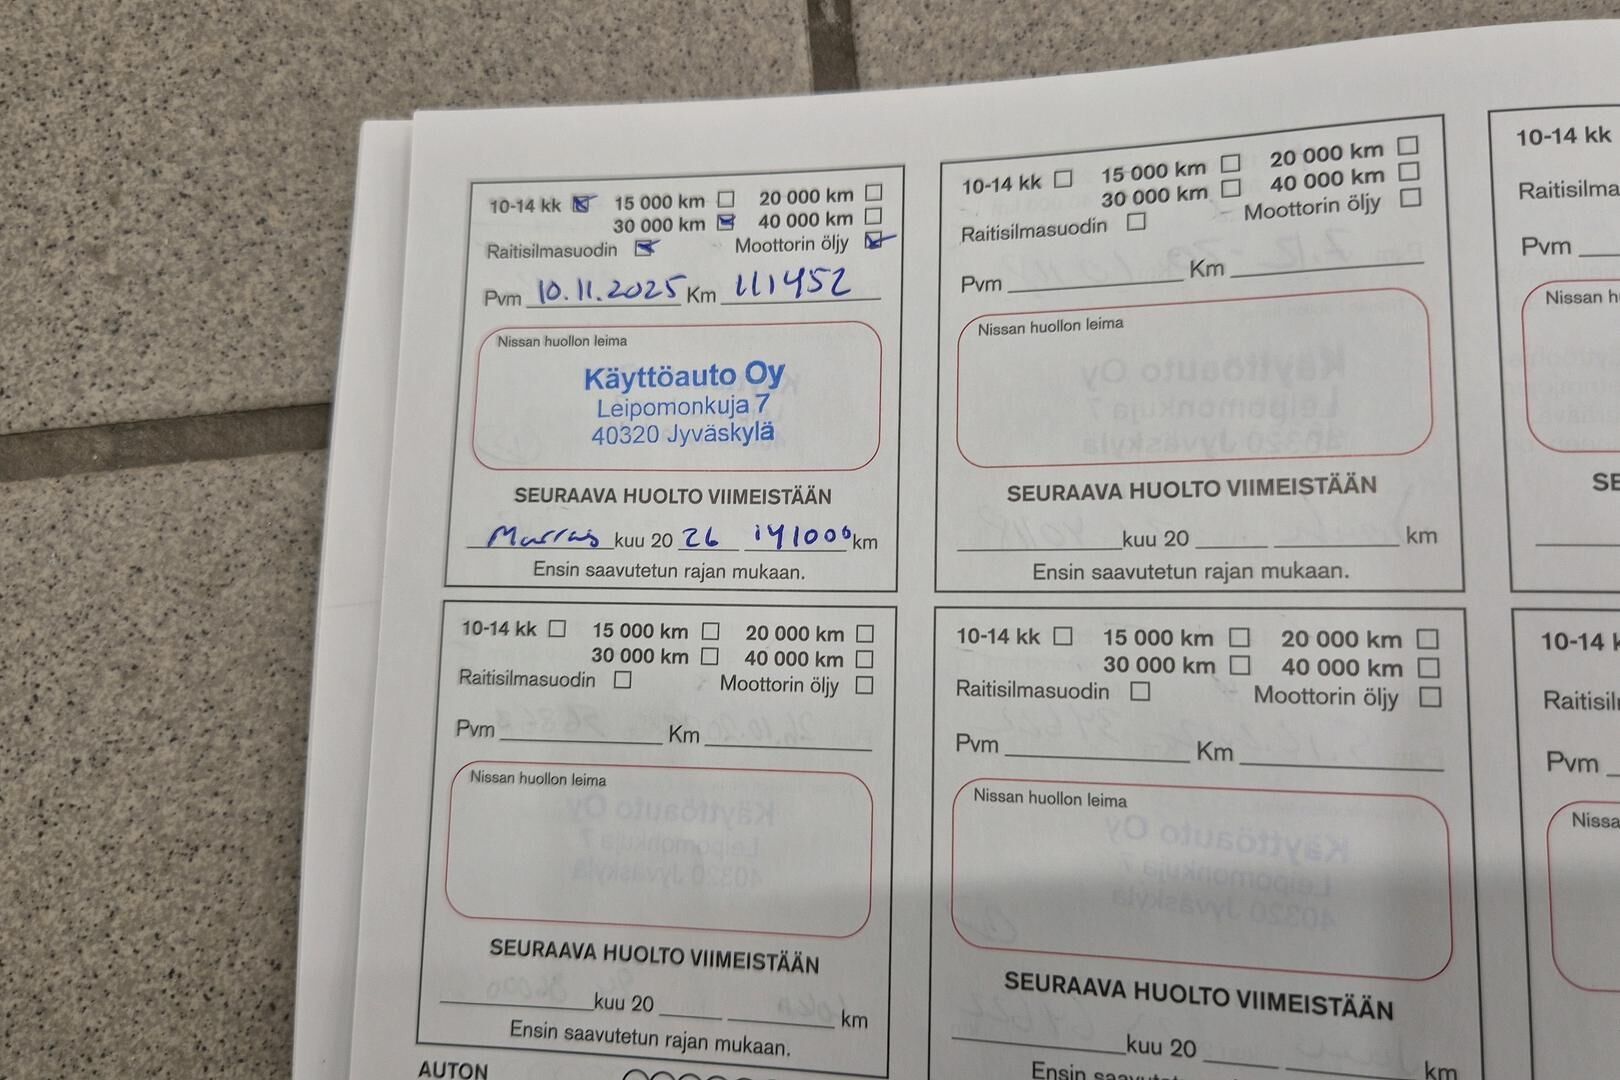 10-14 kk 15 000 km 20 000 km
30 000 km 40 000 km
Raitisilmasuodin Moottorin öljy
Pvm 10.11.2025 Km 111452
Nissan huollon leima
Käyttöauto Oy
Leipomonkuja 7
40320 Jyväskylä
SEURAAVA HUOLTO VIIMEISTÄÄN
Marras kuu 20 26 141000 km
Ensin saavutetun rajan mukaan.
10-14 kk 15 000 km 20 000 km
30 000 km 40 000 km
Raitisilmasuodin Moottorin öljy
Pvm Km
Nissan huollon leima
SEURAAVA HUOLTO VIIMEISTÄÄN
kuu 20 km
Ensin saavutetun rajan mukaan.
10-14 kk
Raitisilma
Pvm
Nissan h
SE
10-14 kk 15 000 km 20 000 km
30 000 km 40 000 km
Raitisilmasuodin Moottorin öljy
Pvm Km
Nissan huollon leima
SEURAAVA HUOLTO VIIMEISTÄÄN
kuu 20 km
Ensin saavutetun rajan mukaan.
AUTON
10-14 kk 15 000 km 20 000 km
30 000 km 40 000 km
Raitisilmasuodin Moottorin öljy
Pvm Km
Nissan huollon leima
SEURAAVA HUOLTO VIIMEISTÄÄN
kuu 20 km
Ensin saavutetun rajan mukaan.
10-14 k
Raitisil
Pvm
Nissa